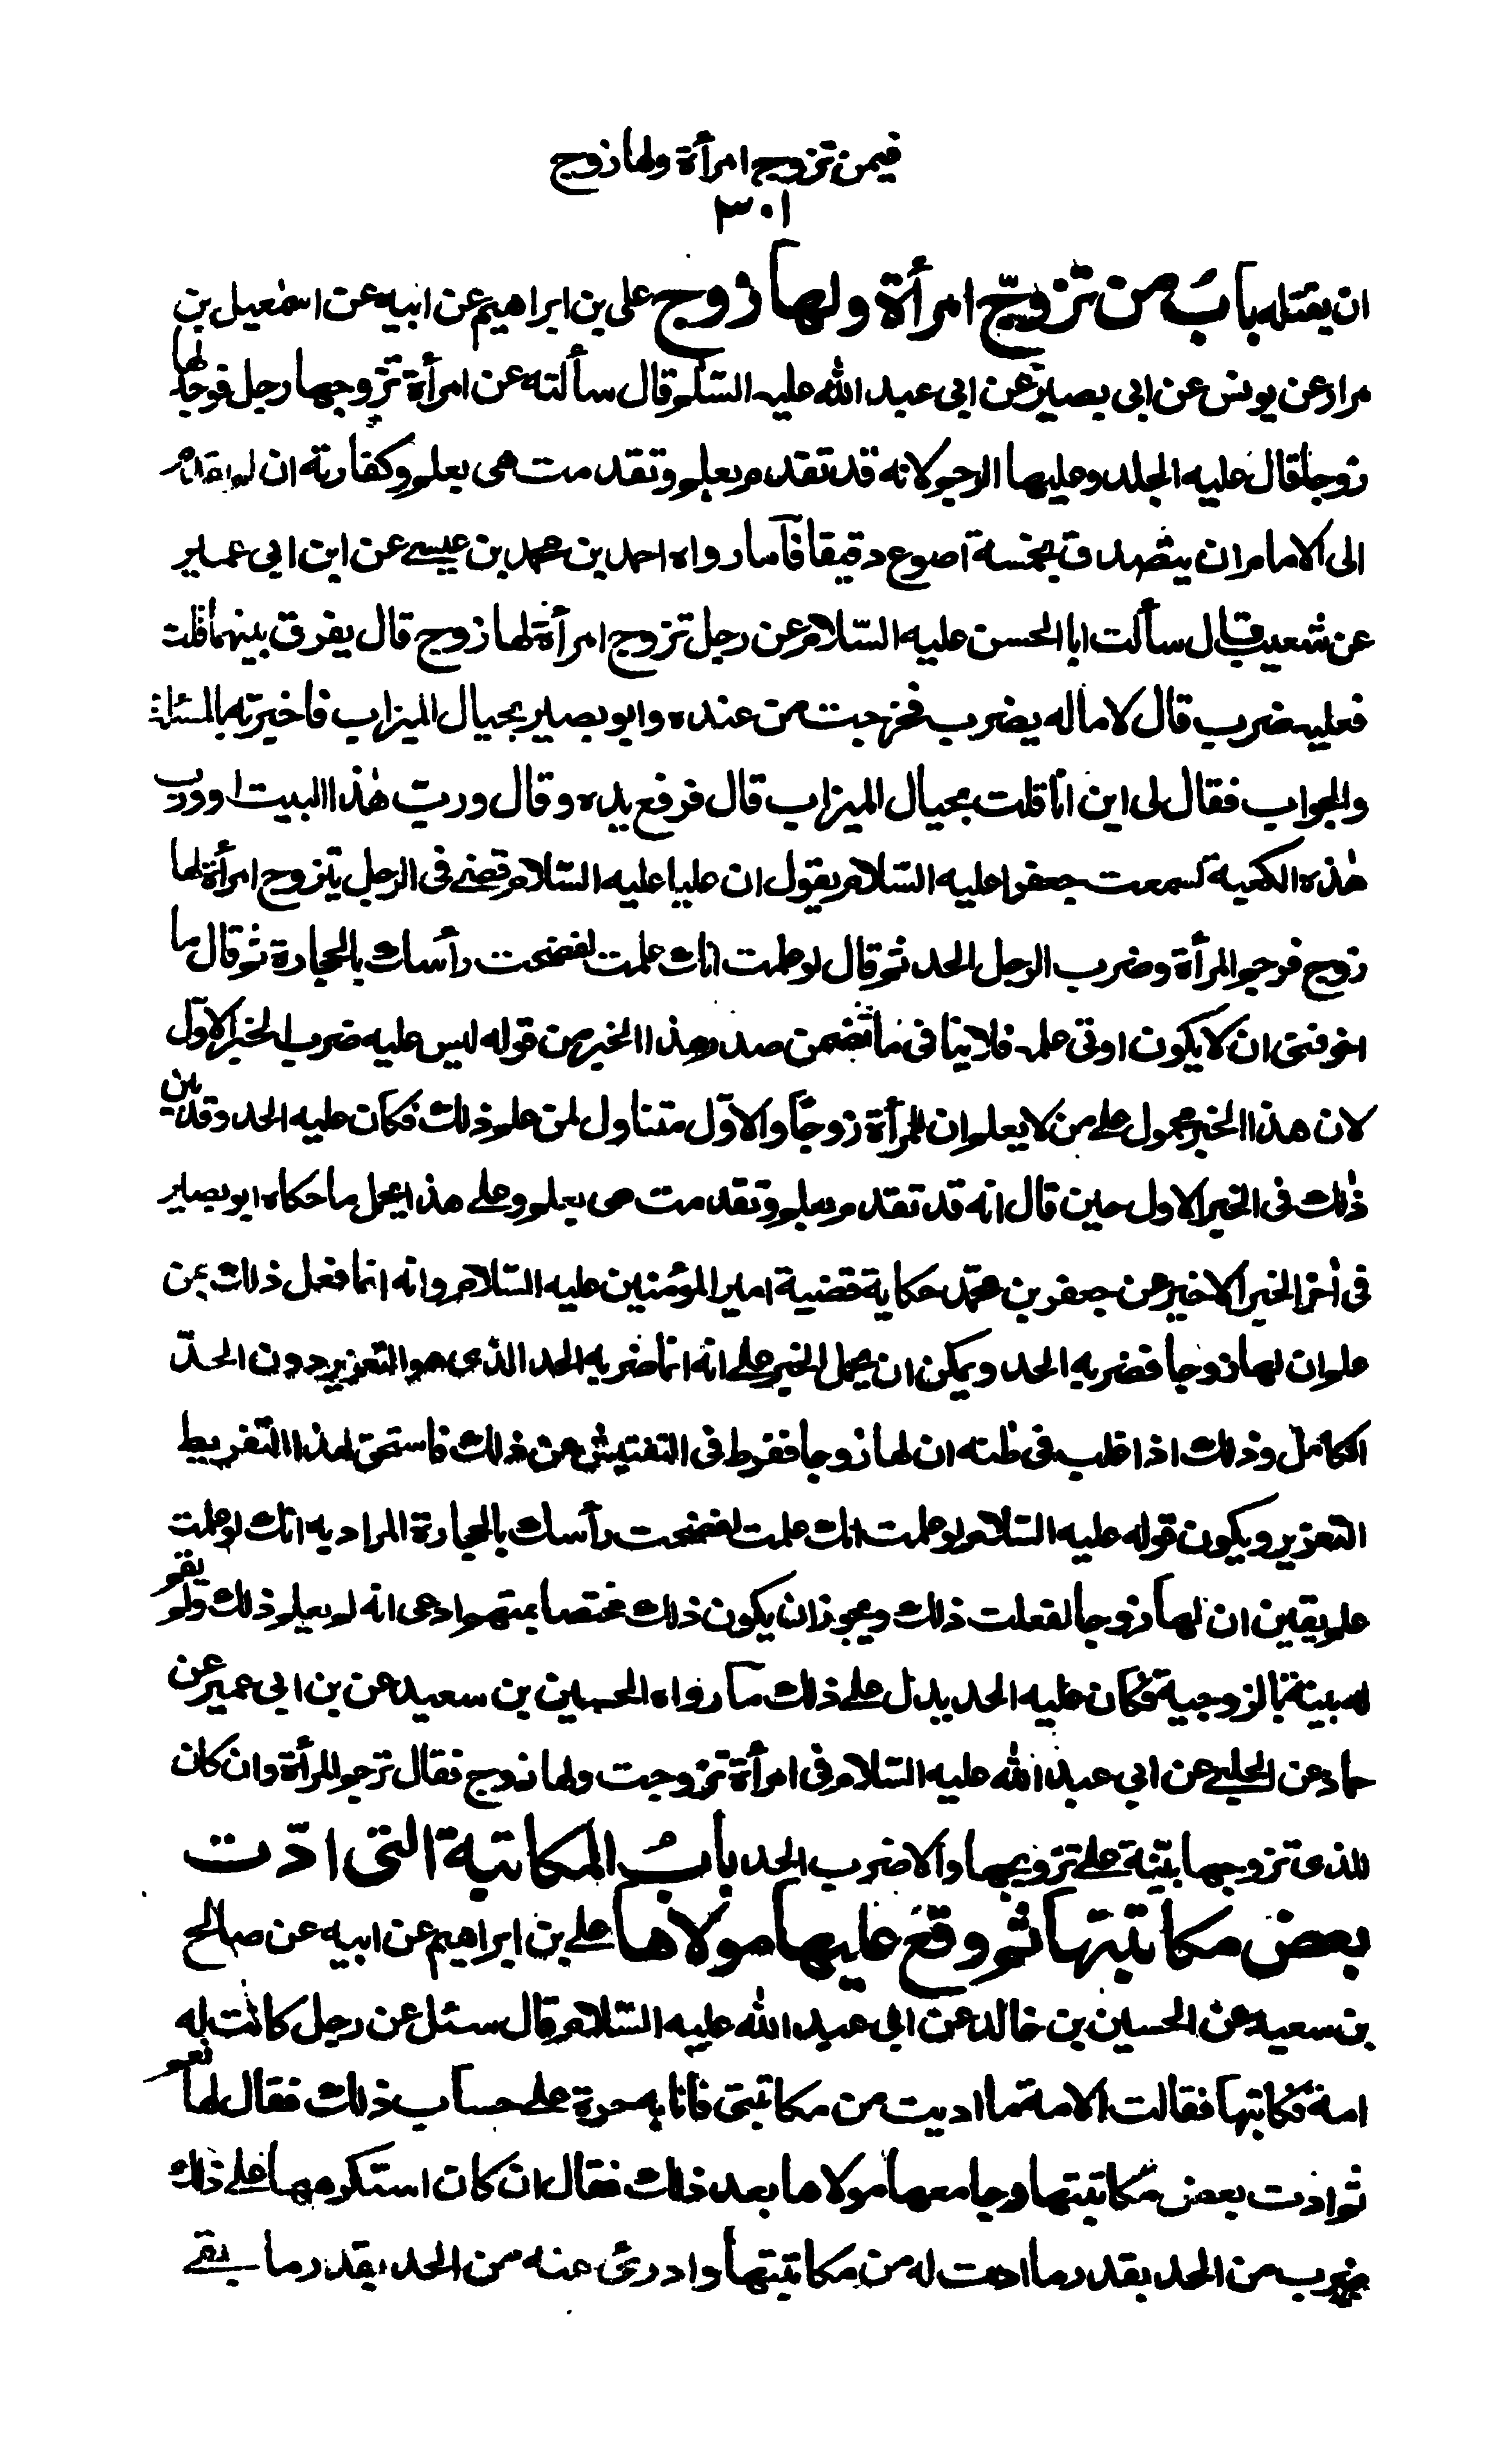 فيمن تزوج امرأة ولها زوج
٣٠١
ان يقتله باب من تزوّج امرأة ولها زوج على بن ابراهيم عن ابيه عن اسمٰعيل بن
مرار عن يونس عن ابى بصير عن ابى عبد الله عليه السّلم قال سألته عن امرأة تزوجها رجل فوجد لها
زوجا قال عليه الجلد وعليها الرجم لانه قد تقدم بعلم وتقدمت هى بعلم وكفارته ان لم يقدم
الى الامام ان يتصدق بخمسة اصوع دقيقا فآما رواه احمد بن محمد بن عيسے عن ابن ابى عمير
عن شعيب قال سألت ابا الحسن عليه السّلام عن رجل تزوج امرأة لها زوج قال يفرق بينهما قلت
فعليه ضرب قال لا ماله يضرب فخرجت من عنده وابو بصير بحيال الميزاب فاخبرته بالمسئلة
والجواب فقال لى اين انا قلت بحيال الميزاب قال فرفع يده وقال وربّ هٰذا البيت او ورب
هٰذه الكعبة لسمعت جعفرا عليه السّلام يقول ان عليا عليه السّلام قضے فى الرجل يتزوج امرأة لها
زوج فرجم المرأة وضرب الرجل الحد ثم قال لو علمت انك علمت لفضخت رأسك بالحجارة ثم قال ما
اخوفنى ان لا يكون اوتى علمه فلا ينافى ما تضمن صدر هذا الخبر من قوله ليس عليه ضرب الخبر الاوّل
لان هذا الخبر محمول علے من لا يعلم ان للمرأة زوجًا والاوّل متناول لمن علم ذلك فكان عليه الحد وقد بين
ذٰلك فى الخبر الاول حين قال انه قد تقدم بعلم وتقدمت هى بعلم وعلے هذا يحمل ما حكاه ابو بصير
فى اٰخر الخبر الاخير عن جعفر بن محمّد حكاية قضية امير المؤمنين عليه السّلام وانه انما فعل ذلك بمن
علم ان لها زوجا فضربه الحد ويمكن ان يحمل الخبر علے انه انما ضربه الحد الذى هو التعزير دون الحدّ
الكامل وذلك اذا غلب فى ظنه ان لها زوجا ففرط فى التفتيش عن ذلك فاستحق لهذا التفريط
التعزير ويكون قوله عليه السّلام لو علمت انك علمت لفضخت رأسك بالحجارة المراد به انك لو علمت
علم يقين ان لها زوجا لفعلت ذلك ويجوز ان يكون ذلك مختصا بمتهم ادعى انه لم يعلم ذلك ولم يقم
له بينة بالزوجية فكان عليه الحد يدل علے ذلك مآ رواه الحسين بن سعيد عن بن ابى عمير عن
حماد عن الحلبے عن ابى عبد الله عليه السّلام فى امرأة تزوجت ولها زوج فقال ترجم المرأة وان كان
للذى تزوجها بيّنة علے تزويجها والا ضرب الحد بابُ المكاتبة التى ادّت
بعض مكاتبتها ثم وقع عليها مولاها علے بن ابراهيم عن ابيه عن صالح
بن سعيد عن الحسين بن خالد عن ابى عبد الله عليه السّلام قال سئل عن رجل كانت له
امة فكاتبها فقالت الامة ما اديت من مكاتبتى فانا به حرة علے حساب ذلك فقال لها نعم
ثم ادت بعض مكاتبتها وجامعها مولاها بعد ذلك فقال ان كان استكرهها علے ذلك
ضرب من الحد بقدر ما ادت له من مكاتبتها وادرئ عنه من الحد بقدر ما بقے